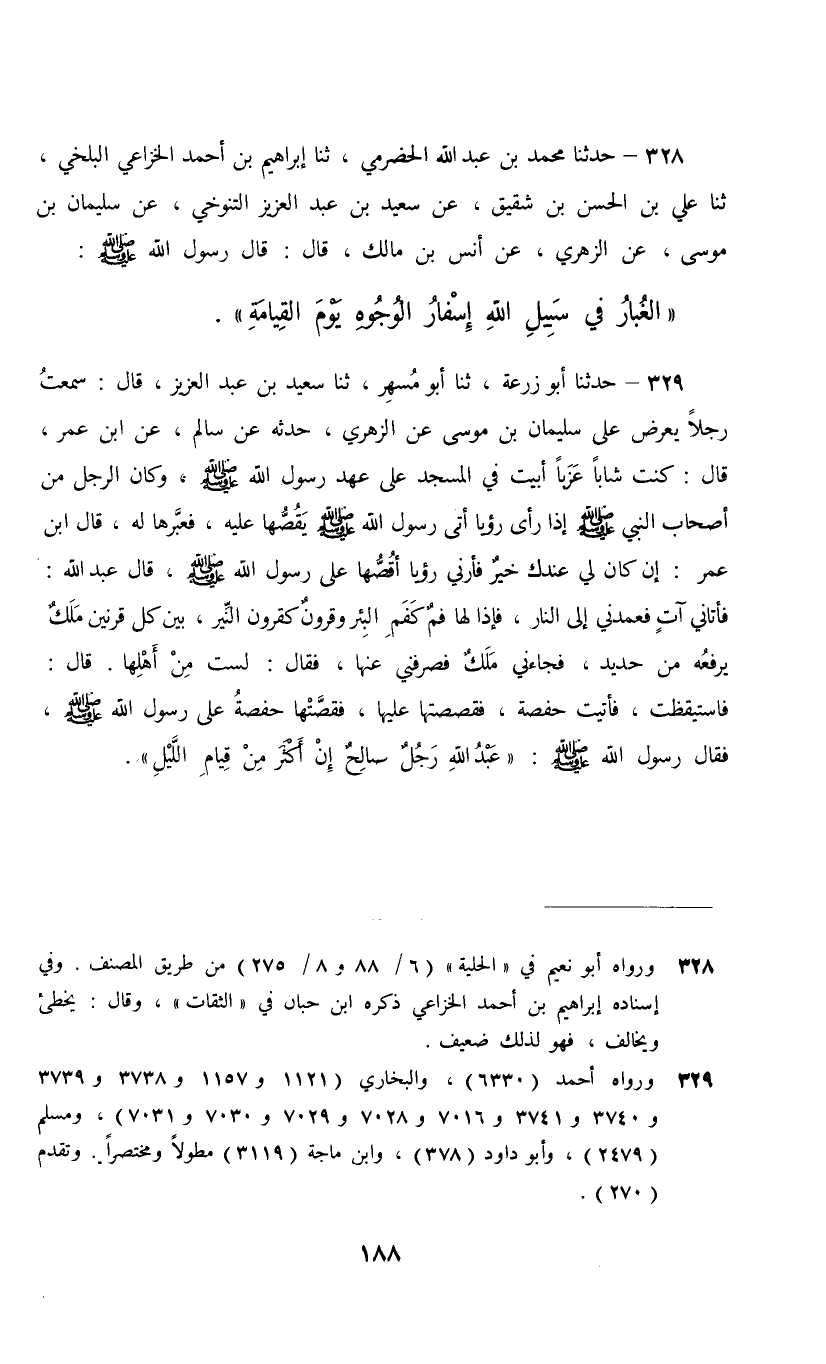 ٣٢٨ – حدثنا محمد بن عبد الله الحضرمي ، ثنا إبراهيم بن أحمد الخزاعي البلخي ،
ثنا علي بن الحسن بن شقيق ، عن سعيد بن عبد العزيز التنوخي ، عن سليمان بن
موسى ، عن الزهري ، عن أنس بن مالك ، قال : قال رسول الله ﷺ :
« الغُبارُ في سَبِيلِ اللهِ إِسْفارُ الوُجُوهِ يَوْمَ القِيامَةِ » .
٣٢٩ – حدثنا أبو زرعة ، ثنا أبو مُسهِر ، ثنا سعيد بن عبد العزيز ، قال : سمعتُ
رجلاً يعرض على سليمان بن موسى عن الزهري ، حدثه عن سالم ، عن ابن عمر ،
قال : كنت شاباً عَزَباً أبيت في المسجد على عهد رسول الله ﷺ ، وكان الرجل من
أصحاب النبي ﷺ إذا رأى رؤيا أتى رسول الله ﷺ يَقُصُّها عليه ، فعبَّرها له ، قال ابن
عمر : إن كان لي عندك خيرٌ فأرني رؤيا أقُصُّها على رسول الله ﷺ ، قال عبد الله :
فأتاني آتٍ فعمدني إلى النار ، فإذا لها فمٌ كَفَمِ البِئر وقرونٌ كقرون النِّير ، بين كل قرنين مَلَكٌ
يرفعُه من حديد ، فجاءني مَلَكٌ فصرفني عنها ، فقال : لست مِنْ أَهْلِها . قال :
فاستيقظت ، فأتيت حفصة ، فقصصتها عليها ، فقصَّتْها حفصةُ على رسول الله ﷺ ،
فقال رسول الله ﷺ : « عَبْدُ اللهِ رَجُلٌ سالِحٌ إِنْ أَكْثَرَ مِنْ قِيامِ اللَّيْلِ » .
٣٢٨ ورواه أبو نعيم في « الحلية » ( ٦ / ٨٨ و ٨ / ٢٧٥ ) من طريق المصنف . وفي
إسناده إبراهيم بن أحمد الخزاعي ذكره ابن حبان في « الثقات » ، وقال : يخطئ
ويخالف ، فهو لذلك ضعيف .
٣٢٩ ورواه أحمد ( ٦٣٣٠ ) ، والبخاري ( ١١٢١ و ١١٥٧ و ٣٧٣٨ و ٣٧٣٩
و ٣٧٤٠ و ٣٧٤١ و ٧٠١٦ و ٧٠٢٨ و ٧٠٢٩ و ٧٠٣٠ و ٧٠٣١ ) ، ومسلم
( ٢٤٧٩ ) ، وأبو داود ( ٣٧٨ ) ، وابن ماجة ( ٣١١٩ ) مطولاً ومختصراً . وتقدم
( ٢٧٠ ) .
١٨٨